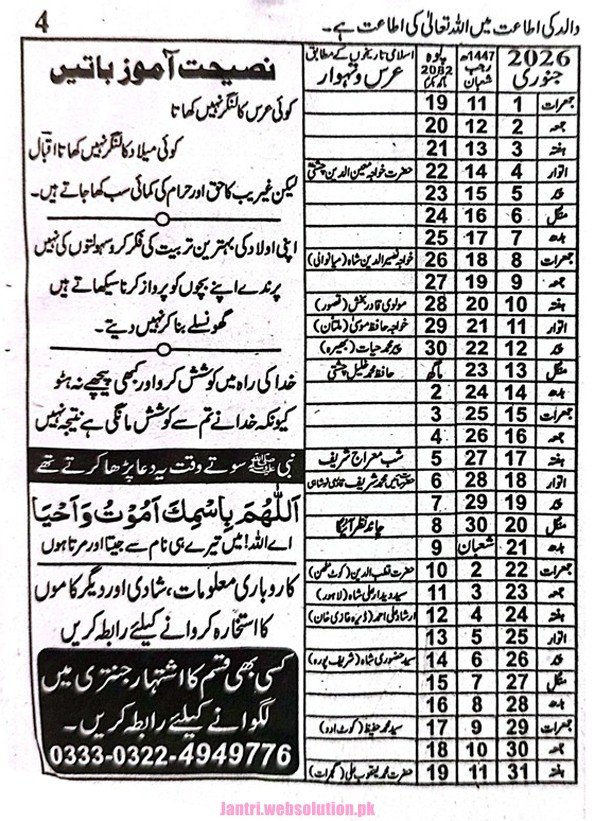 والد کی اطاعت میں اللہ تعالیٰ کی اطاعت ہے۔
4
2026 جنوری
1447ھ رجب شعبان
پوہ 2082
اسلامی تاریخوں کے مطابق عرس و تہوار
جمعرات 1 11 19
جمعہ 2 12 20
ہفتہ 3 13 21
اتوار 4 14 22 حضرت خواجہ معین الدین چشتی
پیر 5 15 23
منگل 6 16 24
بدھ 7 17 25
جمعرات 8 18 26 خواجہ نصیر الدین شاہ (میانوالی)
جمعہ 9 19 27
ہفتہ 10 20 28 مولوی قادر بخش (قصور)
اتوار 11 21 29 خواجہ حافظ موسیٰ (ملتان)
پیر 12 22 30 پیر محمد حیات (بھیرہ)
منگل 13 23 ماگھ حافظ محمد خلیل چشتی
بدھ 14 24 2
جمعرات 15 25 3
جمعہ 16 26 4
ہفتہ 17 27 5 شب معراج شریف
اتوار 18 28 6 محمد شریف قادری نوشاہی
پیر 19 29 7
منگل 20 30 8 چاند نظر آئیگا
بدھ 21 شعبان 9
جمعرات 22 2 10 حضرت قطب الدین (کوٹ مٹھن)
جمعہ 23 3 11 سید دیدار علی شاہ (لاہور)
ہفتہ 24 4 12 ارشاد علی احمد (ڈیرہ غازی خان)
اتوار 25 5 13
پیر 26 6 14 سید حضوری شاہ (شریف پورہ)
منگل 27 7 15
بدھ 28 8 16
جمعرات 29 9 17 سید محمد حفیظ (کوٹ ادو)
جمعہ 30 10 18
ہفتہ 31 11 19 حضرت محمد یعقوب علی (گجرات)
نصیحت آموز باتیں
کوئی عرس کا لنگر نہیں کھاتا
کوئی میلاد کا لنگر نہیں کھاتا اقبال
لیکن غریب کا حق اور حرام کی کمائی سب کھا جاتے ہیں۔
اپنی اولاد کی بہترین تربیت کی فکر کرو سہولتوں کی نہیں
پرندے اپنے بچوں کو پرواز کرنا سیکھاتے ہیں
گھونسلے بنا کر نہیں دیتے۔
خدا کی راہ میں کوشش کرو اور کبھی پیچھے نہ ہٹو
کیونکہ خدا نے تم سے کوشش مانگی ہے نتیجہ نہیں
نبی ﷺ سوتے وقت یہ دعا پڑھا کرتے تھے
اَللّٰهُمَّ بِاسْمِكَ اَمُوْتُ وَاَحْيَا
اے اللہ! میں تیرے ہی نام سے جیتا اور مرتا ہوں
کاروباری معلومات، شادی اور دیگر کاموں
کا استخارہ کروانے کیلئے رابطہ کریں
کسی بھی قسم کا اشتہار جنتری میں
لگوانے کیلئے رابطہ کریں۔
0333-0322-4949776
Jantri.websolution.pk